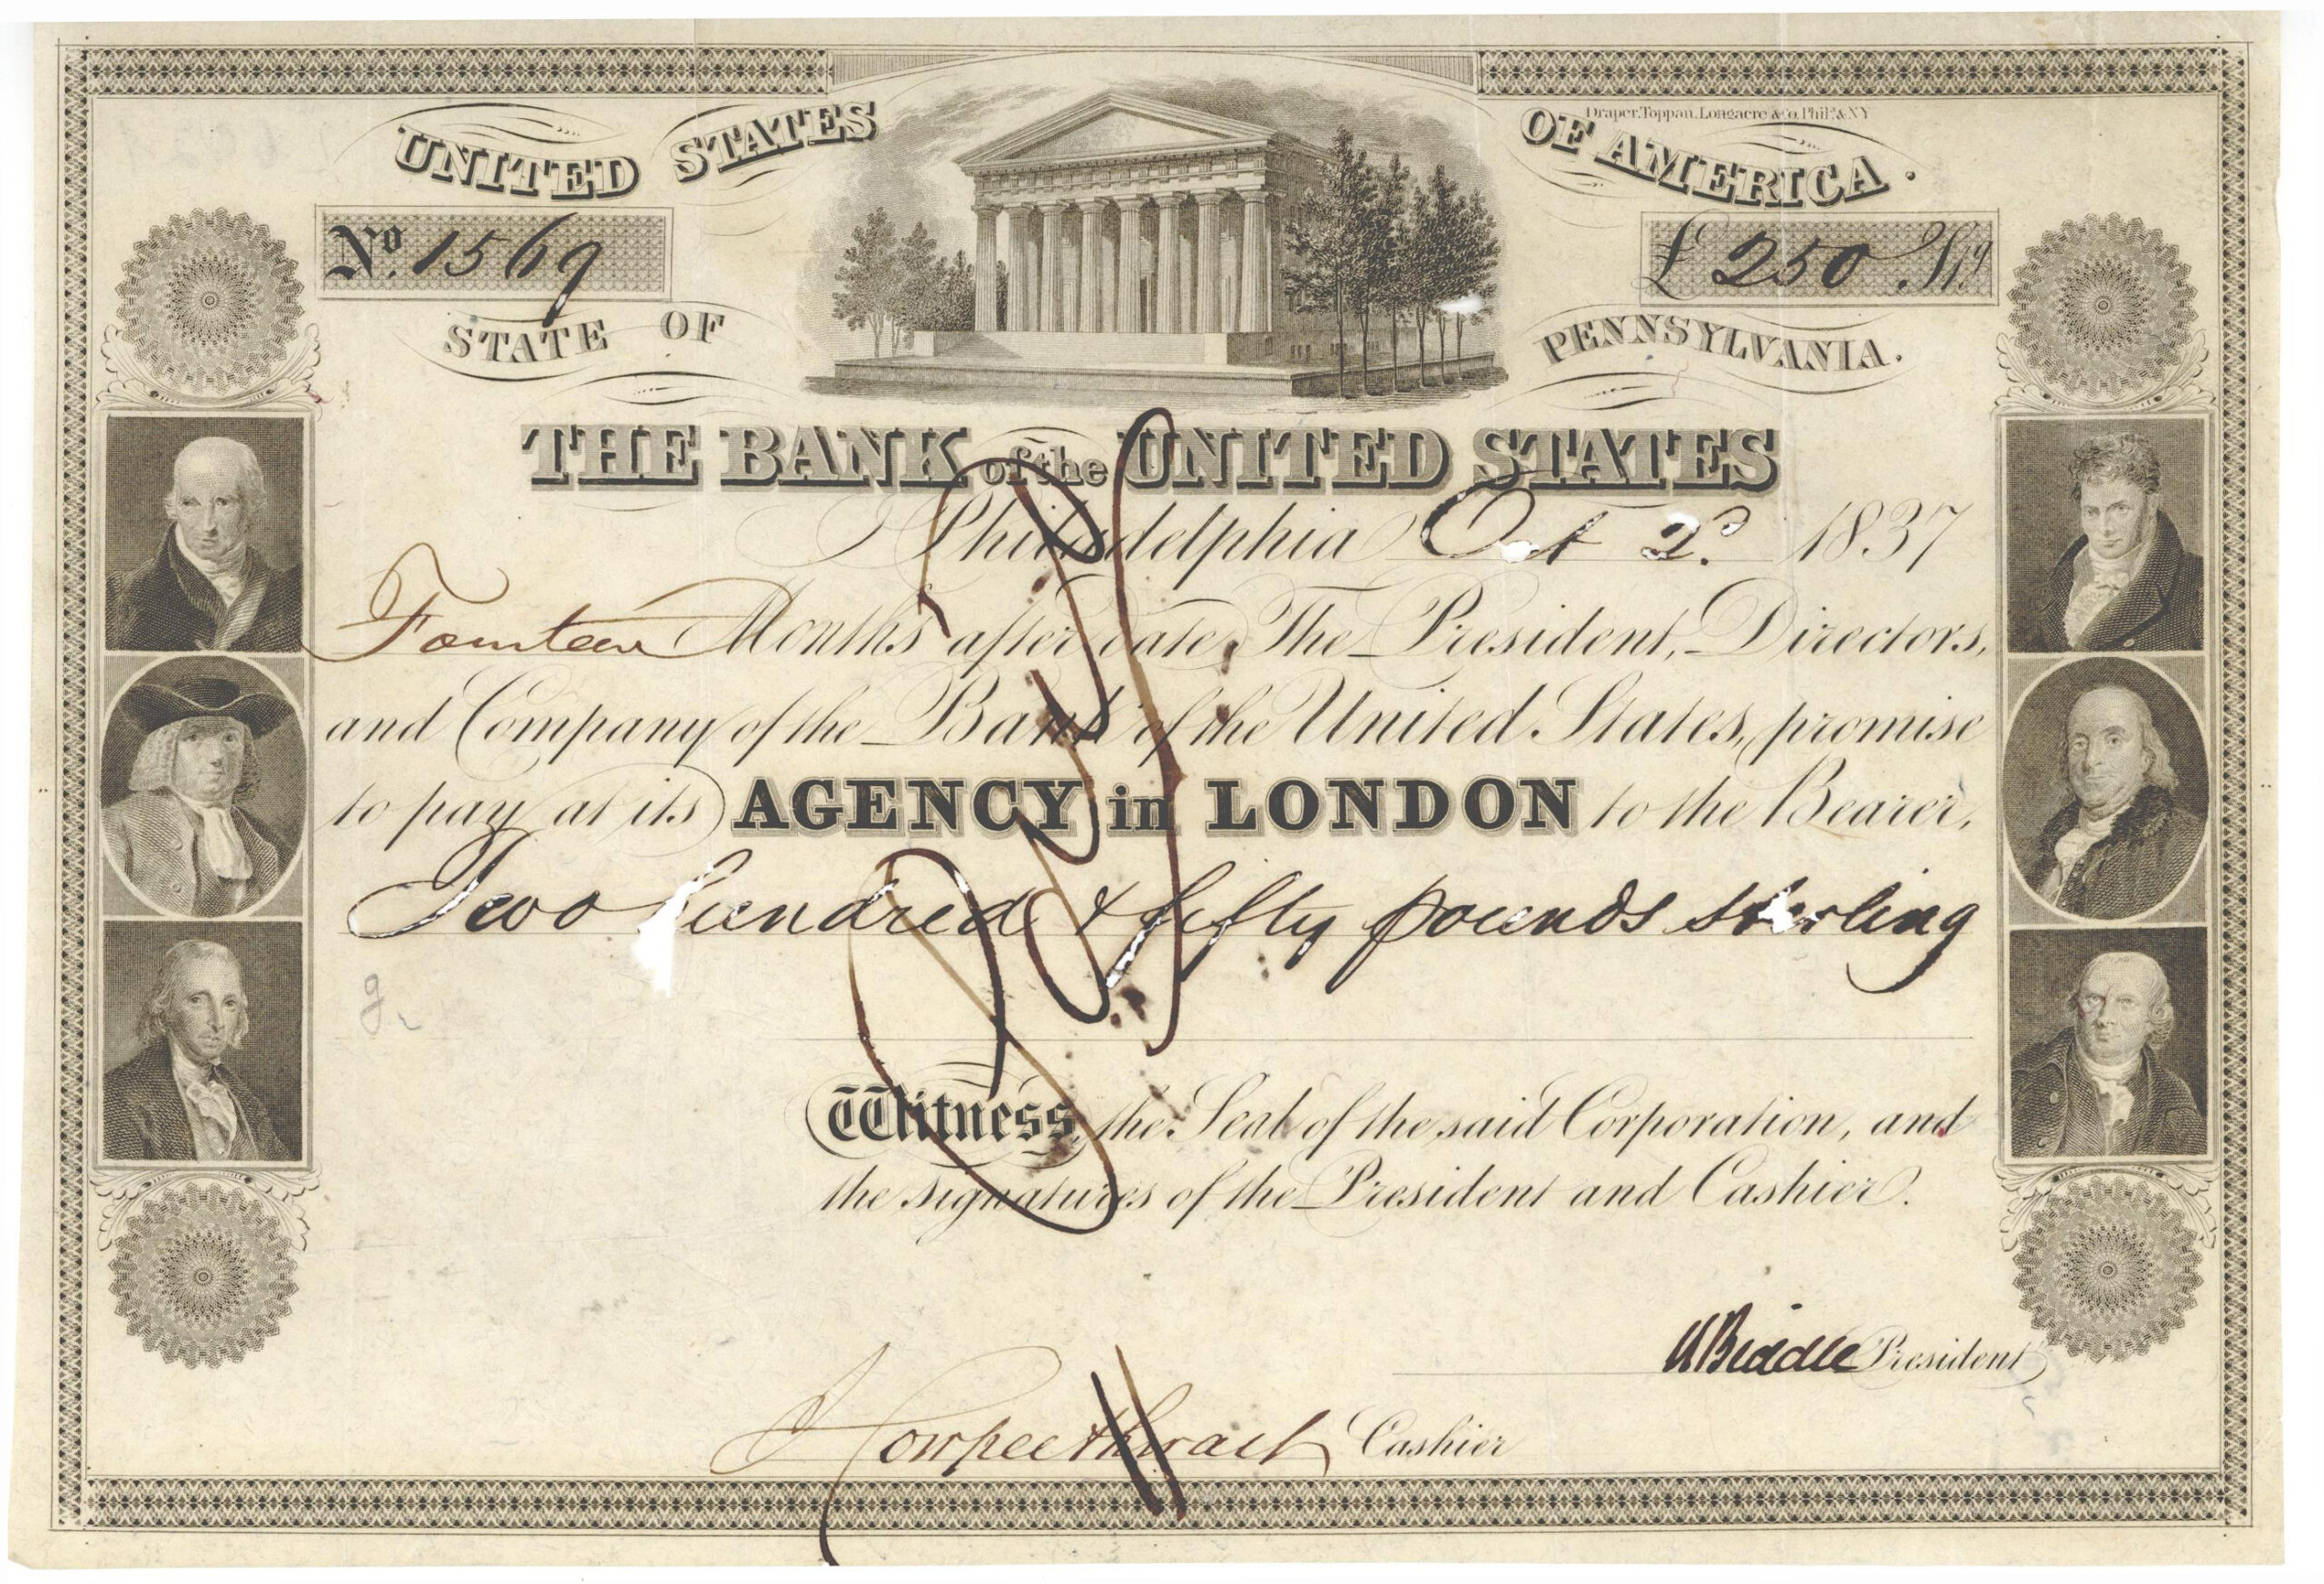 Draper, Toppan, Longacre & Co. Phila. & N.Y.
UNITED STATES OF AMERICA.
No. 1569
£ 250 Stg
STATE OF PENNSYLVANIA.
THE BANK of the UNITED STATES
Philadelphia Oct 2d. 1837
Fourteen Months after date, The President, Directors,
and Company of the Bank of the United States, promise
to pay at its AGENCY in LONDON to the Bearer,
Two hundred & fifty pounds sterling
Witness, the Seal of the said Corporation, and
the signatures of the President and Cashier.
N Biddle President
J Cowperthwait Cashier